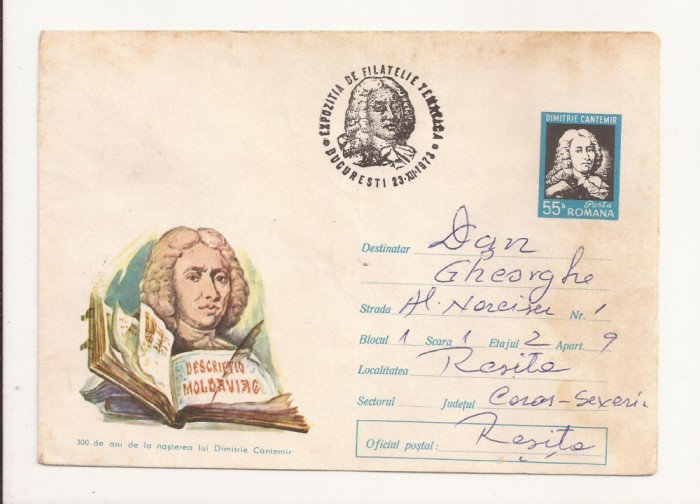 EXPOZIȚIA DE FILATELIE TEMATICĂ
BUCUREȘTI 23-XII-1973
DIMITRIE CANTEMIR
55b Posta
ROMANA
Destinatar Dan
Gheorghe
Strada Al. Narcisei Nr. 1
Blocul 1 Scara 1 Etajul 2 Apart. 9
Localitatea Reșița
Sectorul Județul Caraș-Severin
Oficiul poștal: Reșița
DESCRIPTIO
MOLDAVIAE
300 de ani de la nașterea lui Dimitrie Cantemir